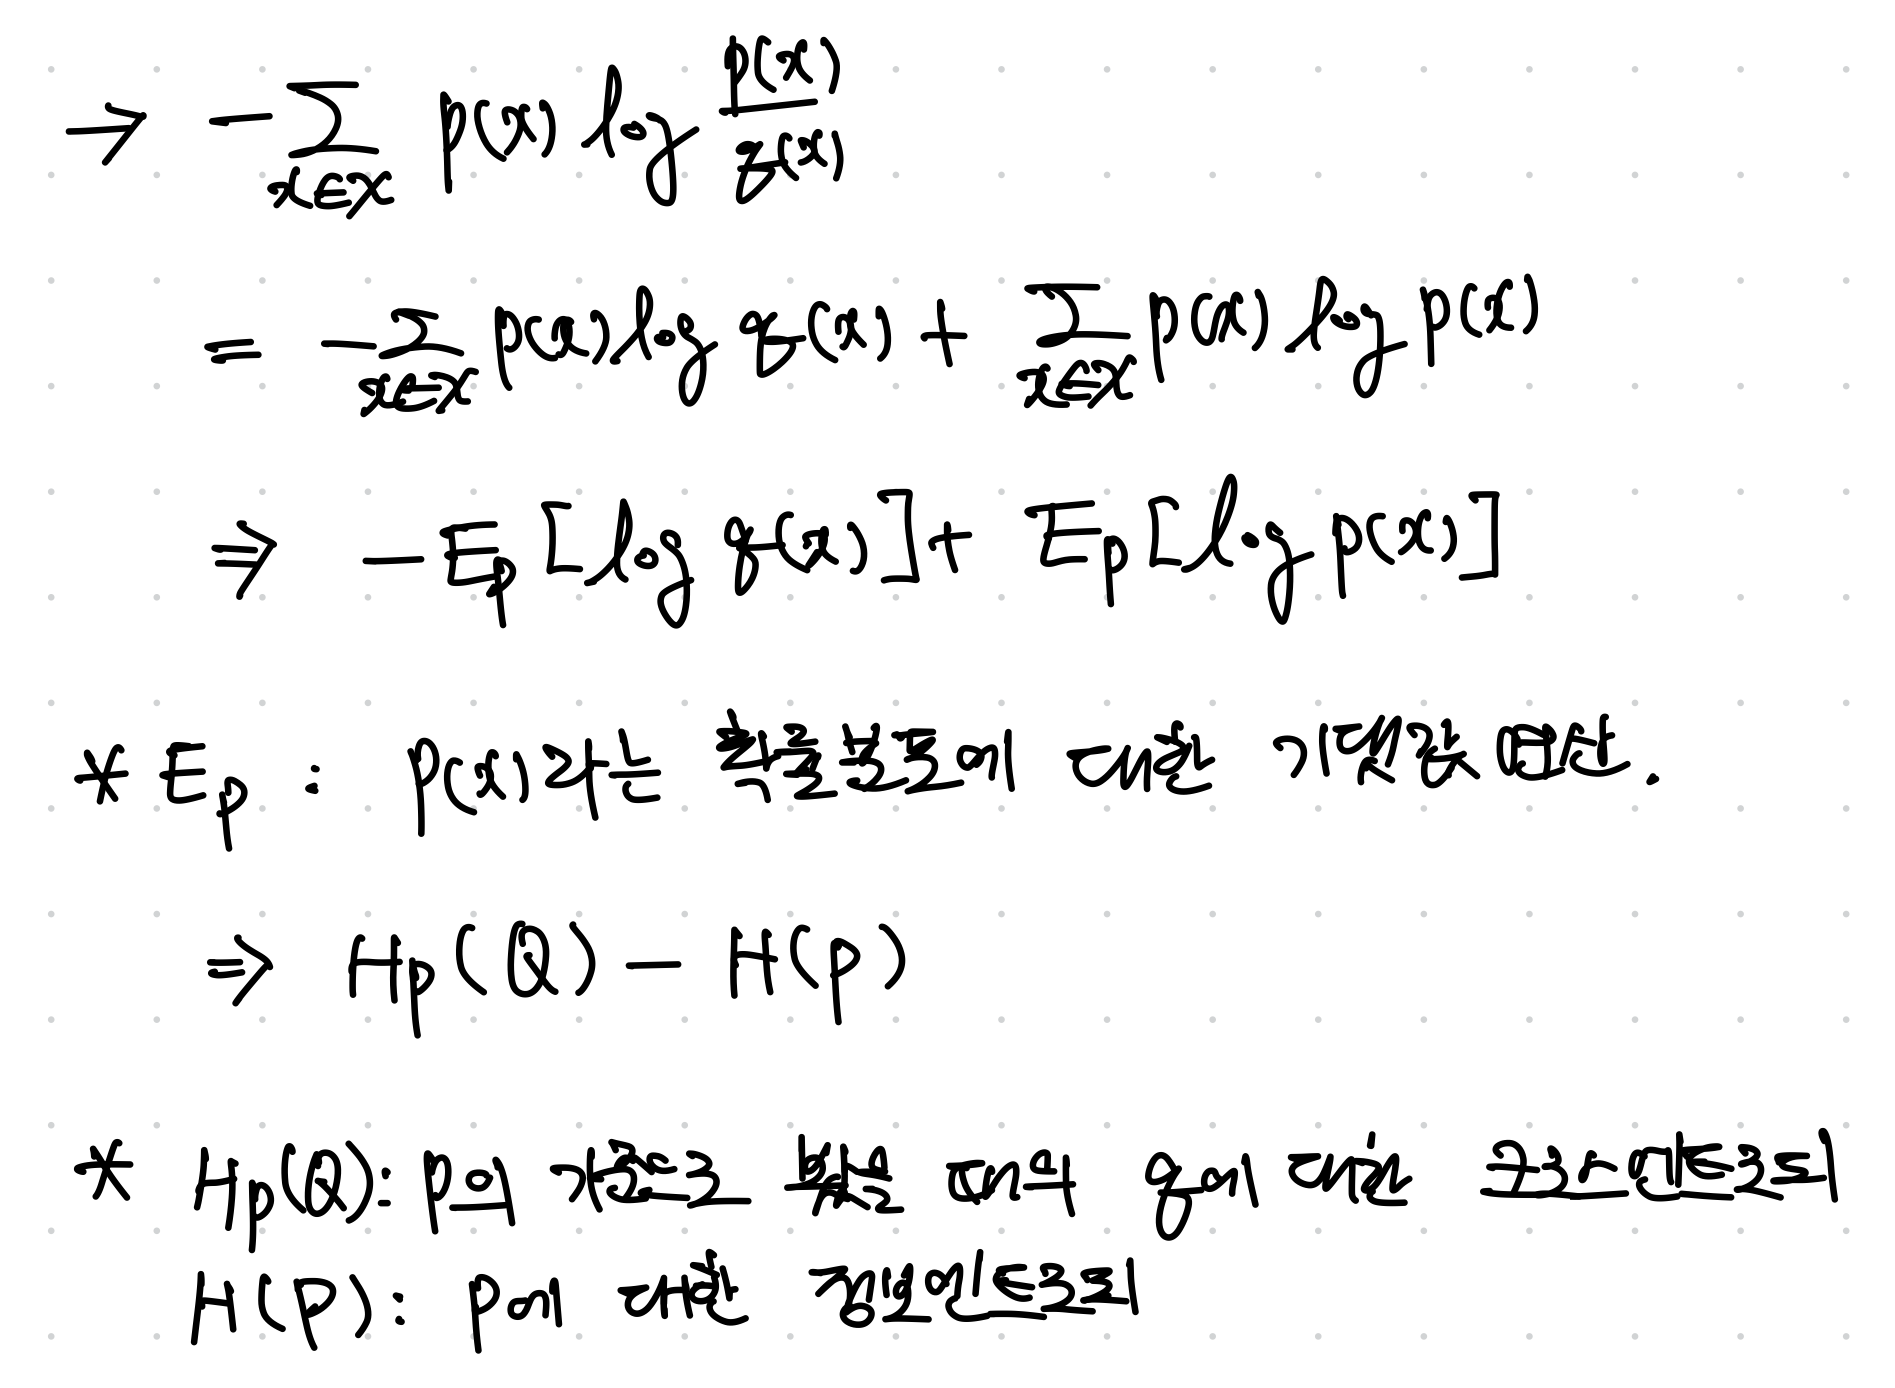 → -∑_{x∈X} p(x) log p(x)/q(x)
= -∑_{x∈X} p(x) log q(x) + ∑_{x∈X} p(x) log p(x)
⇒ -E_p[log q(x)] + E_p[log p(x)]
* E_p : P(x)라는 확률분포에 대한 기댓값 연산.
⇒ H_p(Q) - H(p)
* H_p(Q): p의 기준으로 봤을 때의 q에 대한 크로스엔트로피
H(P): P에 대한 정보엔트로피